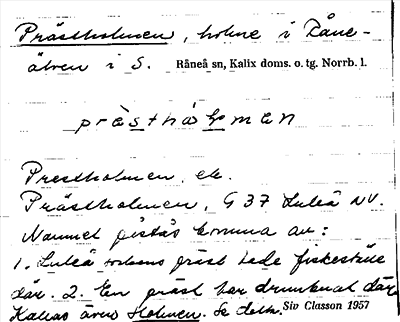 Prästholmen, holme i Råne-
älven i S. Råneå sn, Kalix doms. o. tg. Norrb. l.
prèsthå̀ɫmen
Prestholmen, ek.
Prästholmen, G 37 Luleå NV.
Namnet påstås komma av:
1. Luleå sockens präst hade fiskeställe
där. 2. En präst har drunknat där
Kallas även Holmen. Se detta. Siv Classon 1957